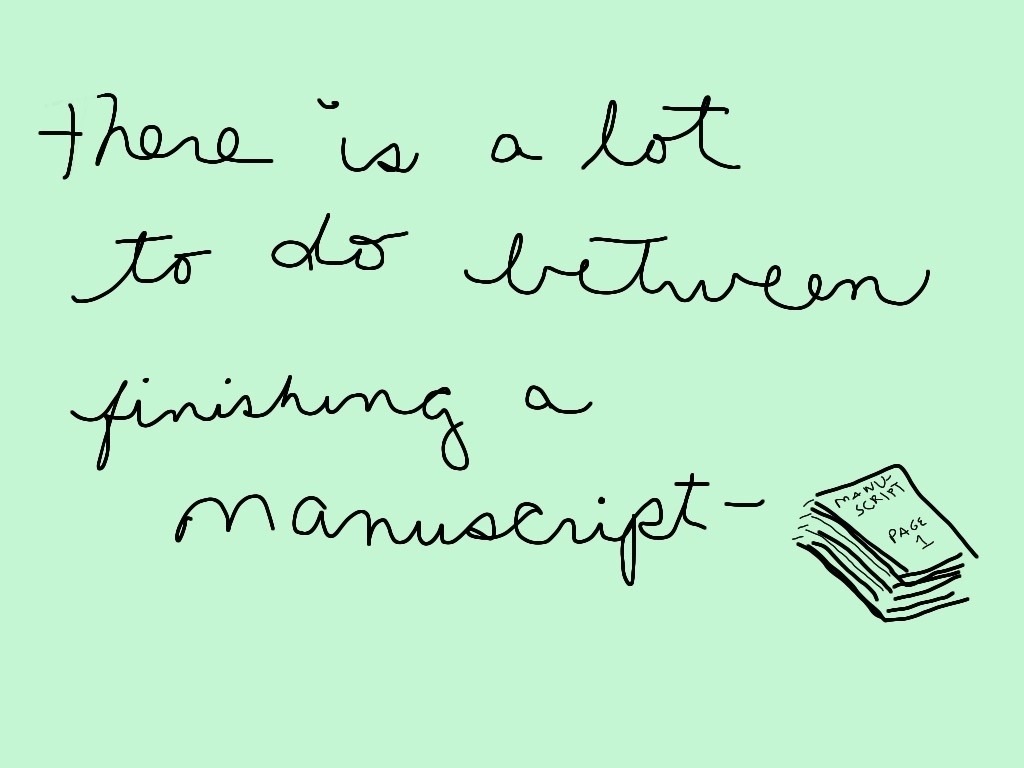 there is a lot
to do between
finishing a
manuscript-
MANU-
SCRIPT
PAGE
1